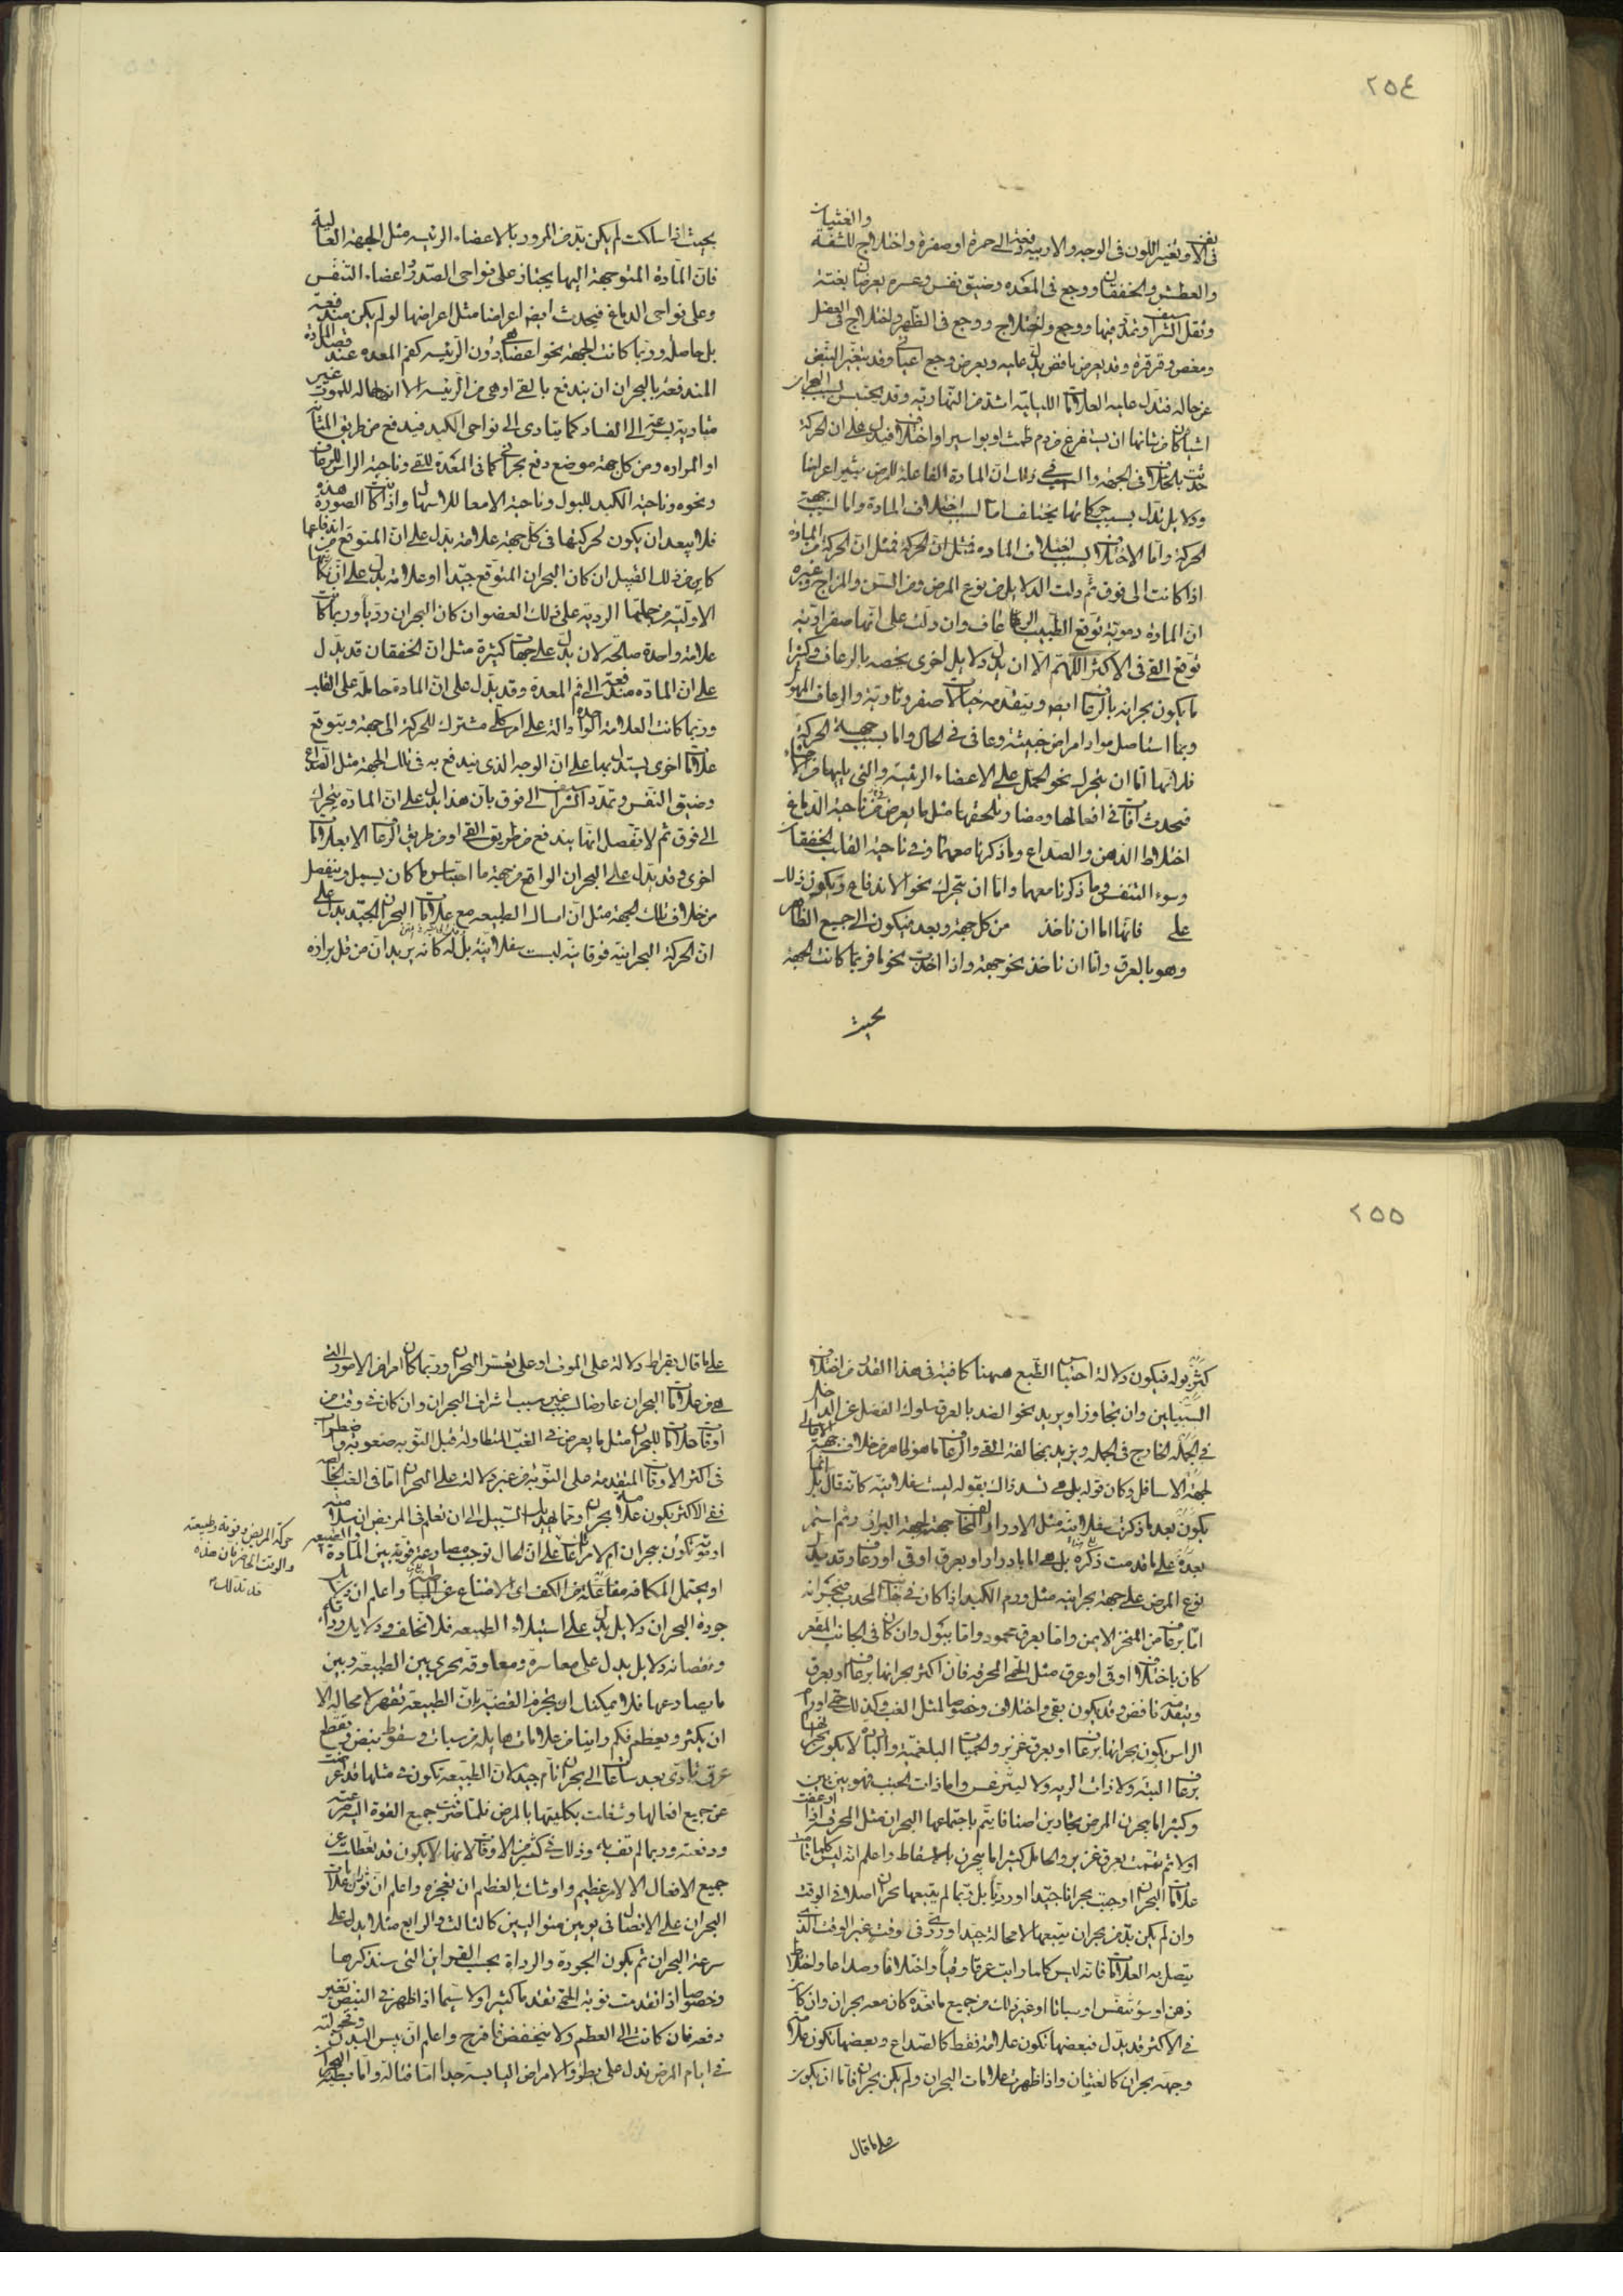 ٢٥٤
والغثيان
فى الانف وتغير اللون فى الوجه والارنبة دفعة الى حمرة او صفرة واختلاج للشفة
والعطش والخفقان ووجع فى المعدة وضيق نفس وعسره يعرضان بغتة
وثقل الشراسيف وتمدد فيها ووجع واختلاج ووجع فى الظهر واختلاج فى العضل
ومغص وقرقرة وقد يعرض نافض يدل عليه ويعرض وجع اعيائى وقد يتغير النبض
عن حاله فتدل عليه العلامات الليلية اشد من النهارية وقد يحتبس لسبب البحران
اشياء كان من شانها ان يستفرغ من دم طمث او بواسير او اختلاف فيدل على ان الحركة
حدثت بالخلاف فى الجهة والسبب فى ذلك ان المادة الفاعلة للمرض يثير اعراضا
ودلايل تدل بسبب حركاتها يختلف اما لسبب اختلاف المادة واما لسبب جهة
الحركة واما الاختلاف لسبب اختلاف المادة فمثل ان الحركة فمثل ان الحركة من المادة
اذا كانت الى فوق ثم دلت الدلايل من نوع المرض ومن السن والمزاج وغيره
ان المادة دموية توقع الطبيب الرعاف وان دلت على انها صفراوية
توقع القى فى الاكثر اللهم الا ان يدل دلايل اخرى يخصه بالرعاف وكثيرا
ما يكون بحرانه بالرعاف ايضا ويتقدمه خيالات صفر ونارية والرعاف المهول
ربما استاصل مواد امراض خبيثة وعافى فى الحال واما بسبب جهة الحركة
فلانها اما ان يتحرك نحو الحمل على الاعضاء الرئيسة والتى يليها من الاحشاء
فتحدث آفات فى افعالها ومضار تلحقها مثل ما يعرض من ناحية الدماغ
اختلاط الذهن والصداع وما ذكرنا معهما وفى ناحية القلب الخفقان
وسوء التنفس وما ذكرنا معهما واما ان يتحرك نحو الاندفاع ويكون ذلك
على فانها اما ان ناخذ من كل جهة وبعد فيكون الى جميع الظاهر
وهو بالعرق واما ان ناخذ نحو جهة واذا اخذت نحوها فربما كانت الجهة
بحيث
بحيث اذا سلكت لم يكن بد من المرور بالاعضاء الرئيسه مثل الجهة العالية
فان المادة المتوجهة اليها يجتاز على نواحى الصدر واعضاء التنفس
وعلى نواحى الدماغ فيحدث ايضا اعراضا مثل اعراضها لو لم يكن مندفعة
بل حاصلة وربما كانت الجهة نحو اعضاء هى دون الرئيسه كفم المعده عند فصل المادة
المندفعة بالبحران ان يندفع بالقى او هى من الرئيسه الا انها حاله للموت غير
متادية بسرعة الى الفساد كما يتادى الى نواحى الكبد فيندفع من طريق المثانة
او المراره ومن كل جهة موضع دفع بحرانى كما فى المعدة للقى وناحية الراس للرعاف
ونحوه وناحية الكبد للبول وناحية الامعا للاسهال واذا كانت الصورة هذه
فلا يبعد ان يكون لحركتها فى كل جهة علامة يدل على ان المتوقع من اندفاعها
كاين من ذلك القبيل ان كان البحران المتوقع جيدا او علامة يدل على ان نكايتها
الاولية من جملتها الردية على ذلك العضو ان كان البحران رديا وربما كانت
علامة واحدة صالحة لان يدل على جهات كثيرة مثل ان الخفقان قد يدل
على ان المادة مندفعة الى فم المعدة وقد يدل على ان المادة حاملة على القلب
وربما كانت العلامة الواحدة دالة على امر كلى مشترك للحركة الى جهة ويتوقع
علامات اخرى يستدل بها على ان الوجه الذى يندفع به فى تلك الجهة مثل الصداع
وضيق النفس وتمدد الشراسيف الى فوق بان هذا يدل على ان المادة يتحرك
الى فوق ثم لا تفصل انها يندفع من طريق القى او من طريق الرعاف الا بعلامات
اخرى وقد يدل على البحران الواقع من جهة ما احتباس ما كان يسيل وينفصل
من خلاف تلك الجهة مثل ان امساك الطبيعة مع علامات البحران الجيد يدل على
ان الحركة البحرانية فوقانية ليست سفلانية بل له كانه يريد ان من قل برازه
٢٥٥
كثر بوله فيكون دلالة احتباس الطبع ههنا كافية فى هذا القدر من اختلاف
السبيلين وان يجاوزا ويريد نحو الضد بالعرق سلوك الفضل عن الداخل
فى الجملة الخارج فى الجملة ويريد بمخالفة القى والرعاف ما هو لها من خلاف جهة الاعالى
لجهة الاسافل وكان قوله بل هى تسد ذلك بقوله ليست سفلانية كانه قال بل انما
يكون بعد ما ذكرت سفلانية مثل الادرار المخالف جهة لجهة البراز وثم استمر
بعده على ما قدمت ذكره بل هى اما بادرار او بعرق او قى او رعاف وقد يدل
نوع المرض على جهة بحرانية مثل ورم الكبد اذا كان فى جانب المحدب فبحرانه
اما برعاف من المنخر الايمن واما بعرق محمود واما ببول وان كان فى الجانب المقعر
كان باختلاف او قى او عرق مثل الحمى المحرقة فان اكثر بحرانها برعاف او بعرق
ويتقدمه نافض وقد يكون بقى واختلاف وخصوصا لمثل الغب وكذلك حمى اورام
الراس يكون بحرانها برعاف او بعرق غزير والحميات البلغمية والباردة لا يكون بحرانها
برعاف البتة ولا ذات الرية ولا ليثرغس واما ذات الجنب فهو بين بين
وكثيرا ما يبحرن المرض بحارين اصنافا يتم باجتماعها البحران مثل المحرقة اذا رعفت
اولا ثم تممت بعرق غزير والحامل كثيرا ما يبحرن بالاسقاط واعلم انه ليس كلما قامت
علامات البحران اوجبت بحرانا جيدا او رديا بل ربما لم يتبعها بحران اصلا فى الوقت
وان لم يكن بد من بحران يتبعها لا محالة جيد او ردى فى وقت غير الوقت الذى
يتصل به العلامات فانه ليس كلما رايت عرقا وقيا واختلافا وصداعا واختلاط
ذهن او سؤ تنفس او سباتا او غير ذلك من جميع ما تعده كان معه بحران وان كان
فى الاكثر قد يدل فبعضها تكون علامة فقط كالصداع وبعضها تكون علامة
وجهة بحران كالغثيان واذا ظهرت علامات البحران ولم يكن بحران فاما ان يكون
على ما قال
على ما قال بقراط دلالة على الموت او على تعسر البحران وربما كان امرا من الامور التى
هى من علامات البحران عارضا لسبب غير سبب اشراف البحران وان كانت فى وقت من
اوقات علامات للبحران مثل ما يعرض فى الغب المتطاولة قبل النوبة صعوبة واضطراب
فى اكثر الاوقات المتقدمة على النوبة من غير دلالة على البحران اما فى الغب الخالصة
ففى الاكثر يكون علامة بحران ومما يهديك السبيل الى ان تعلم فى المريض ان سلامته
او موته تكون ببحران ام لا مراعاتك على ان الحال توجب مصارعة قوية بين المادة والطبيعة
حركة المرض وقوته وطبيعته
والوقت الحاضر فان هذه
قد تدلك
او يحتمل المكافة مفاعلة من الكف اى الامتناع عن واعلم ان دلايل
جودة البحران دلايل يدل على استيلاء الطبيعة فلا تختلف ودلايل رداءته
ونقصانه دلايل يدل على معاسرة ومعاوقة يجرى بين الطبيعة وبين
ما يصارعها فلا يمكنك ان تجزم القضية بان الطبيعة تقهر لا محالة الا
ان يكثر ويعظم فكم راينا من علامات هايلة من سبات وسقوط نبض وتقطع
عرق تادى بعد ساعات الى بحران تام جيد لان الطبيعة تكون فى مثلها قد اعرضت
عن جميع افعالها وشغلت بكليتها بالمرض فلما صرفت جميع القوة اليه صرعته
ودفعته وربما لم تف به وذلك فى كثير من الاوقات لانها لا يكون قد تعطلت عن
جميع الافعال الا لامر عظيم واوشك بالعظيم ان تعجزه واعلم ان توافى علامات
البحران على الاتصال فى يومين متواليين كالثالث والرابع مثلا يدل على
سرعة البحران ثم يكون الجودة والرداة بحسب القوانين التى سنذكرها
وخصوصا اذا تقدمت نوبة الحمى تقدما كثيرا ولا سيما اذا ظهر فى النبض تغير
دفعة فان كانت الى العظم ولا ينخفض فافرح واعلم ان يبس البدن ونحولته
فى ايام المرض تدل على بطؤ والامراض اليابسة جدا اما قتالة واما بطيئة البحران